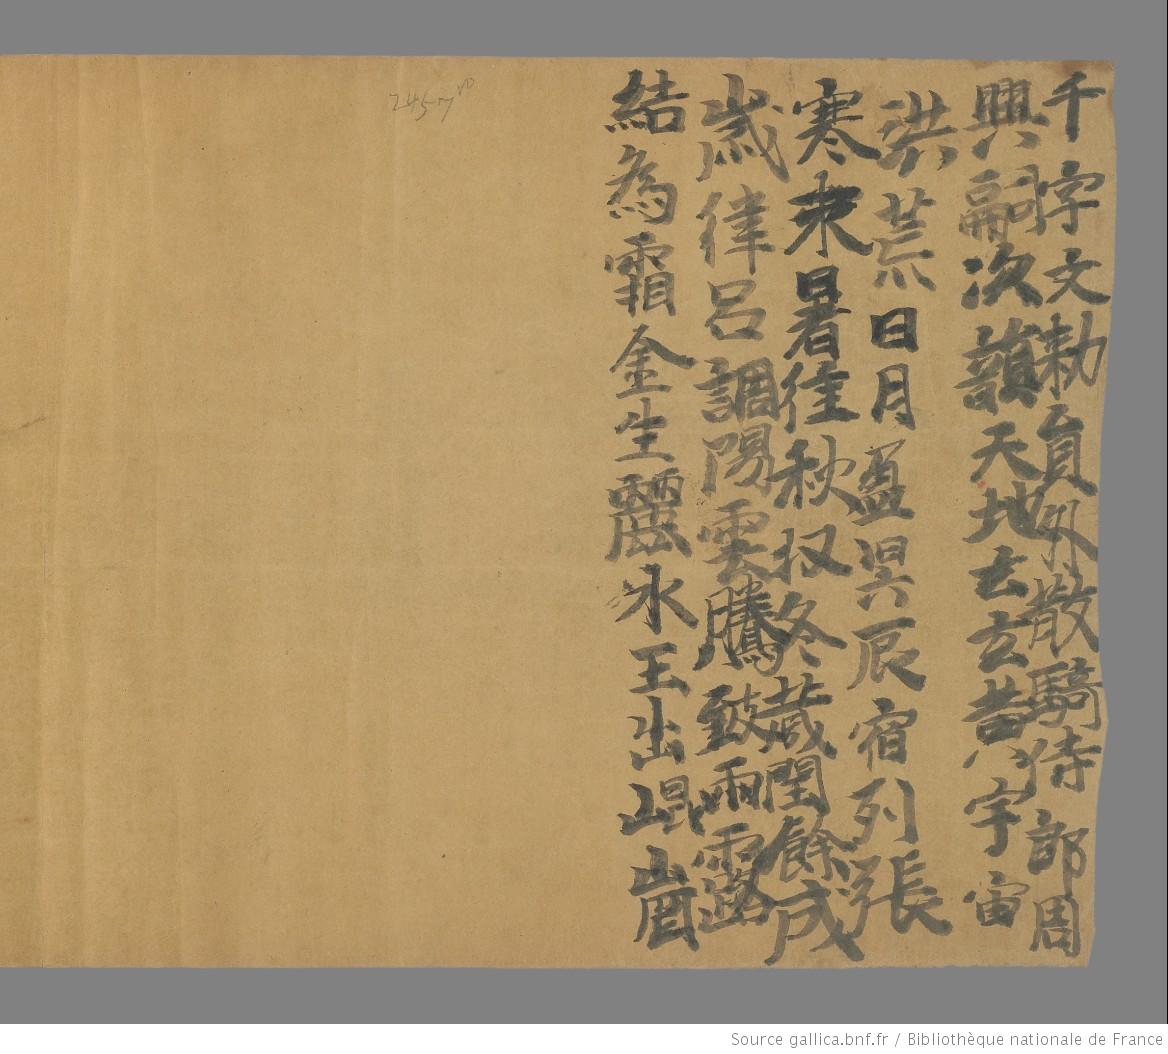 千字文勅員外散騎侍郎周
興嗣次韻天地玄玄黄宇宙
洪荒日月盈昃辰宿列張
寒来暑往秋収冬蔵閏餘成
歳律呂調陽雲騰致雨露
結為霜金生麗水玉出崐崗
2457 vo
Source gallica.bnf.fr / Bibliothèque nationale de France